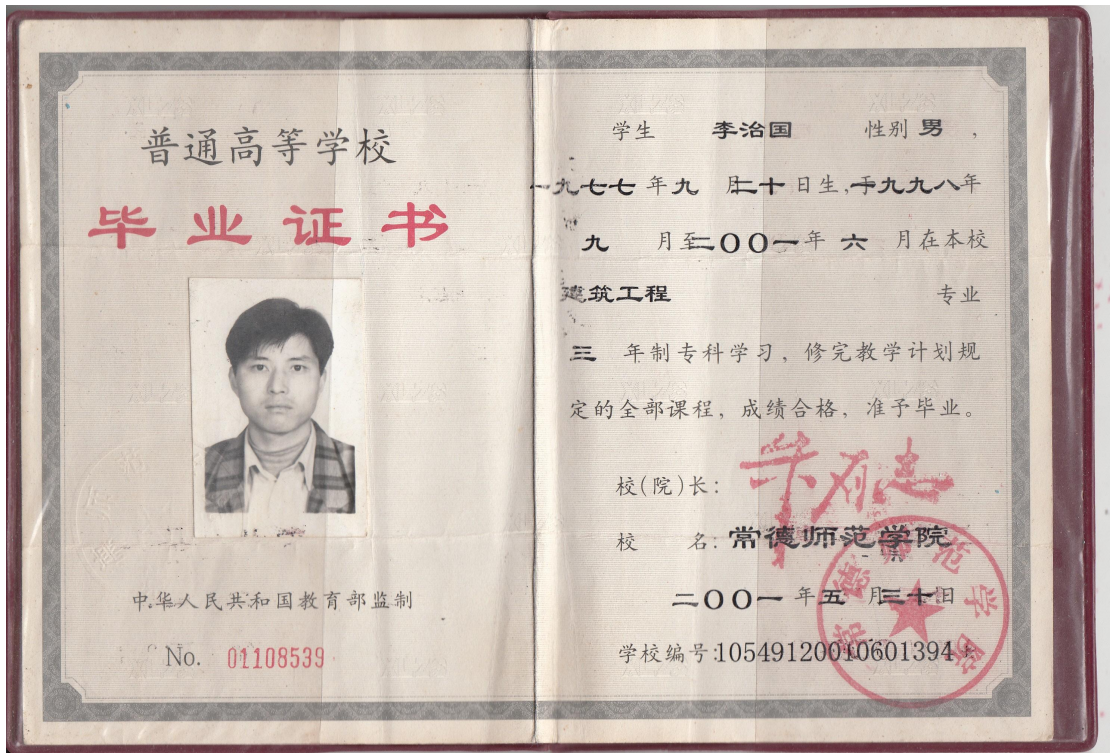 普通高等学校
毕业证书
中华人民共和国教育部监制
No. 01108539
学生 李治国 性别 男 ,
一九七七 年 九 月 二十 日生, 于 一九九八 年
九 月至 二〇〇一 年 六 月在本校
建筑工程 专业
三 年制专科学习, 修完教学计划规
定的全部课程, 成绩合格, 准予毕业。
校(院)长:
校 名: 常德师范学院
二〇〇一 年 五 月 三十 日
学校编号: 10549120010601394
常德师范学院